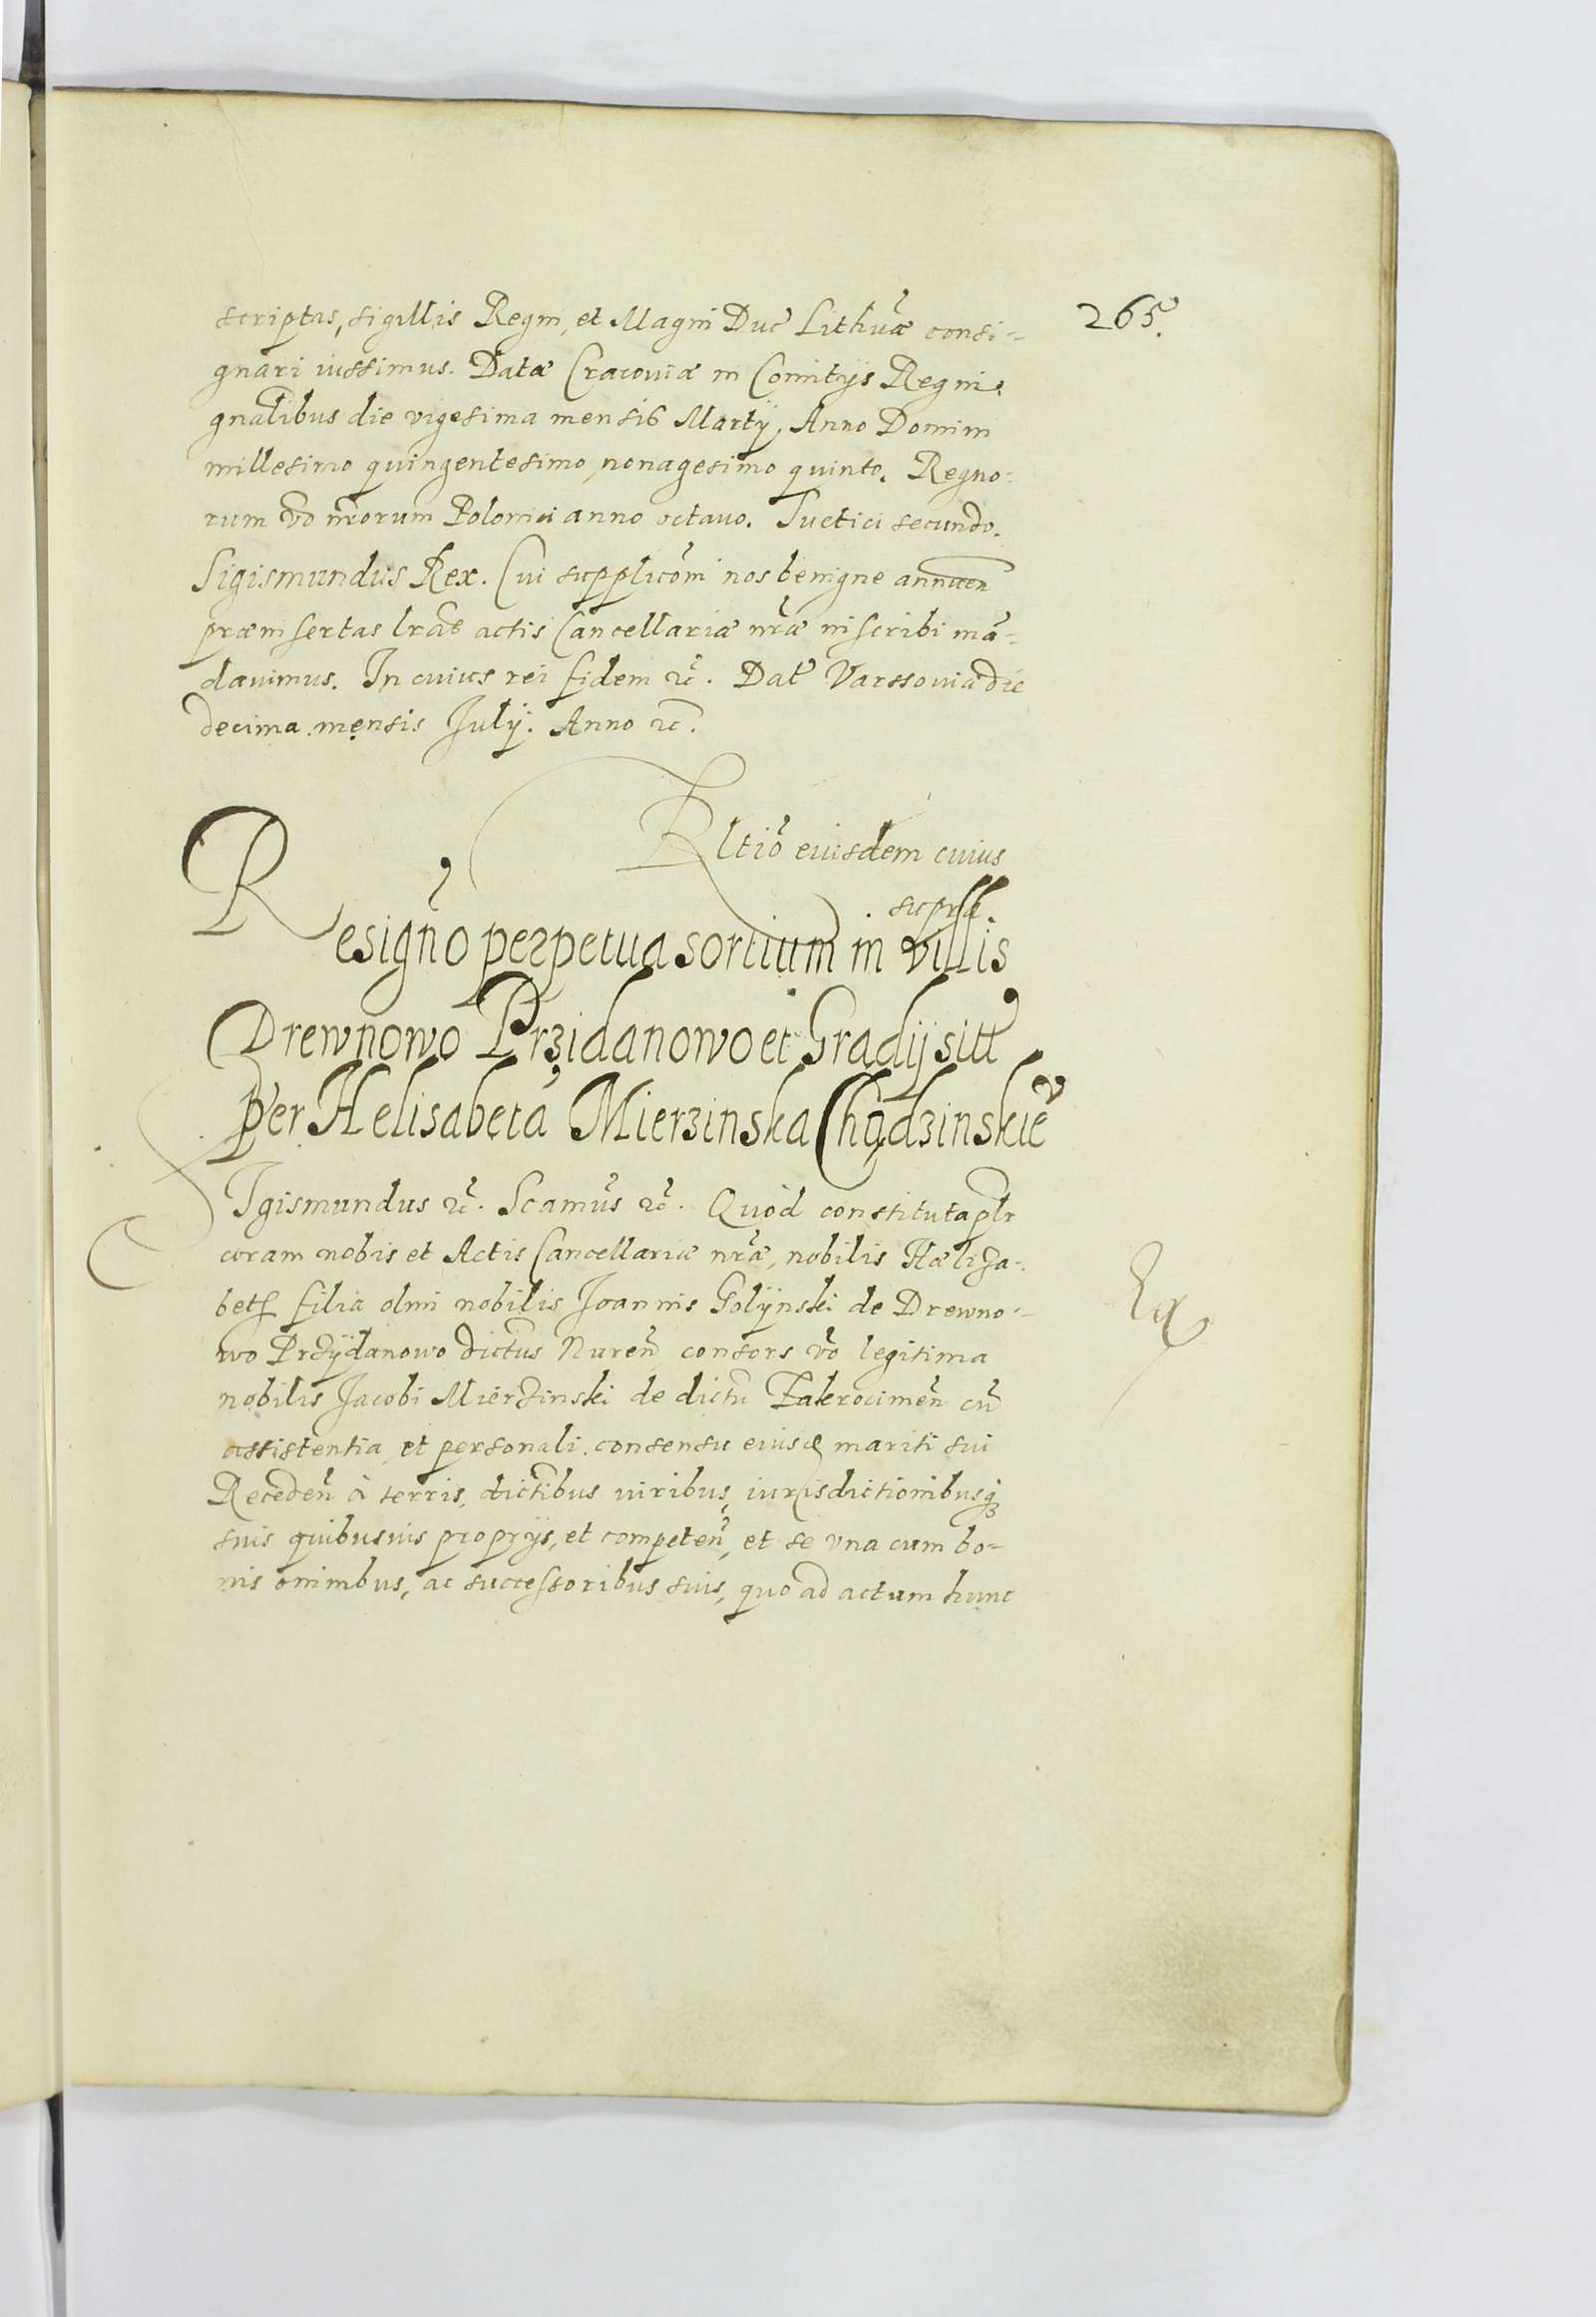 265.
scriptas, sigillis Regni, et Magni Duc̃ Lithuãæ consi-
gnari iussimus. Datæ Cracouiæ in Comitijs Regni
gnãlibus die vigesima mensis Martij, Anno Domini
millesimo quingentesimo, nonagesimo quinto. Regno-
rum võ nrõrum Poloniei anno octauo. Suetici secundo.
Sigismundus Rex. Cui supplicõni nos benigne annuen̄
præinsertas lrãs actis Cancellariæ nrãæ inscribi mã-
dauimus. In cuius rei fidem ꝛc̃. Dat̃ Varssouiæ die
decima mensis Julij. Anno ꝛc̃.
Rltiõ eiusdem cuius
supra.
Resignõ perpetua sortium in villis
Drewnowo Przidanowo et Gradij sitt̃
per Helisabetã Mierzinska Chądzinskiẽ
Sigismundus ꝛc̃. Scamũs ꝛc̃. Quòd constituta plr̃
coram nobis et Actis Cancellariæ nrãæ, nobilis Hæliza-
beth filia olim nobilis Joannis Golijnski de Drewno-
wo Przÿdanowo dictũs Nureñ consors võ legitima
nobilis Jacobi Mierzinski de dictũ Zakrocimeñ cũ
assistentia et personali consensu eiusd mariti sui
Recedeñ à terris, dictĩbus viribus, iurisdictionibusqꝫ
suis quibusuis proprijs, et competeñ, et se vna cum bo-
nis omnibus, ac successoribus suis, quo ad actum hunc